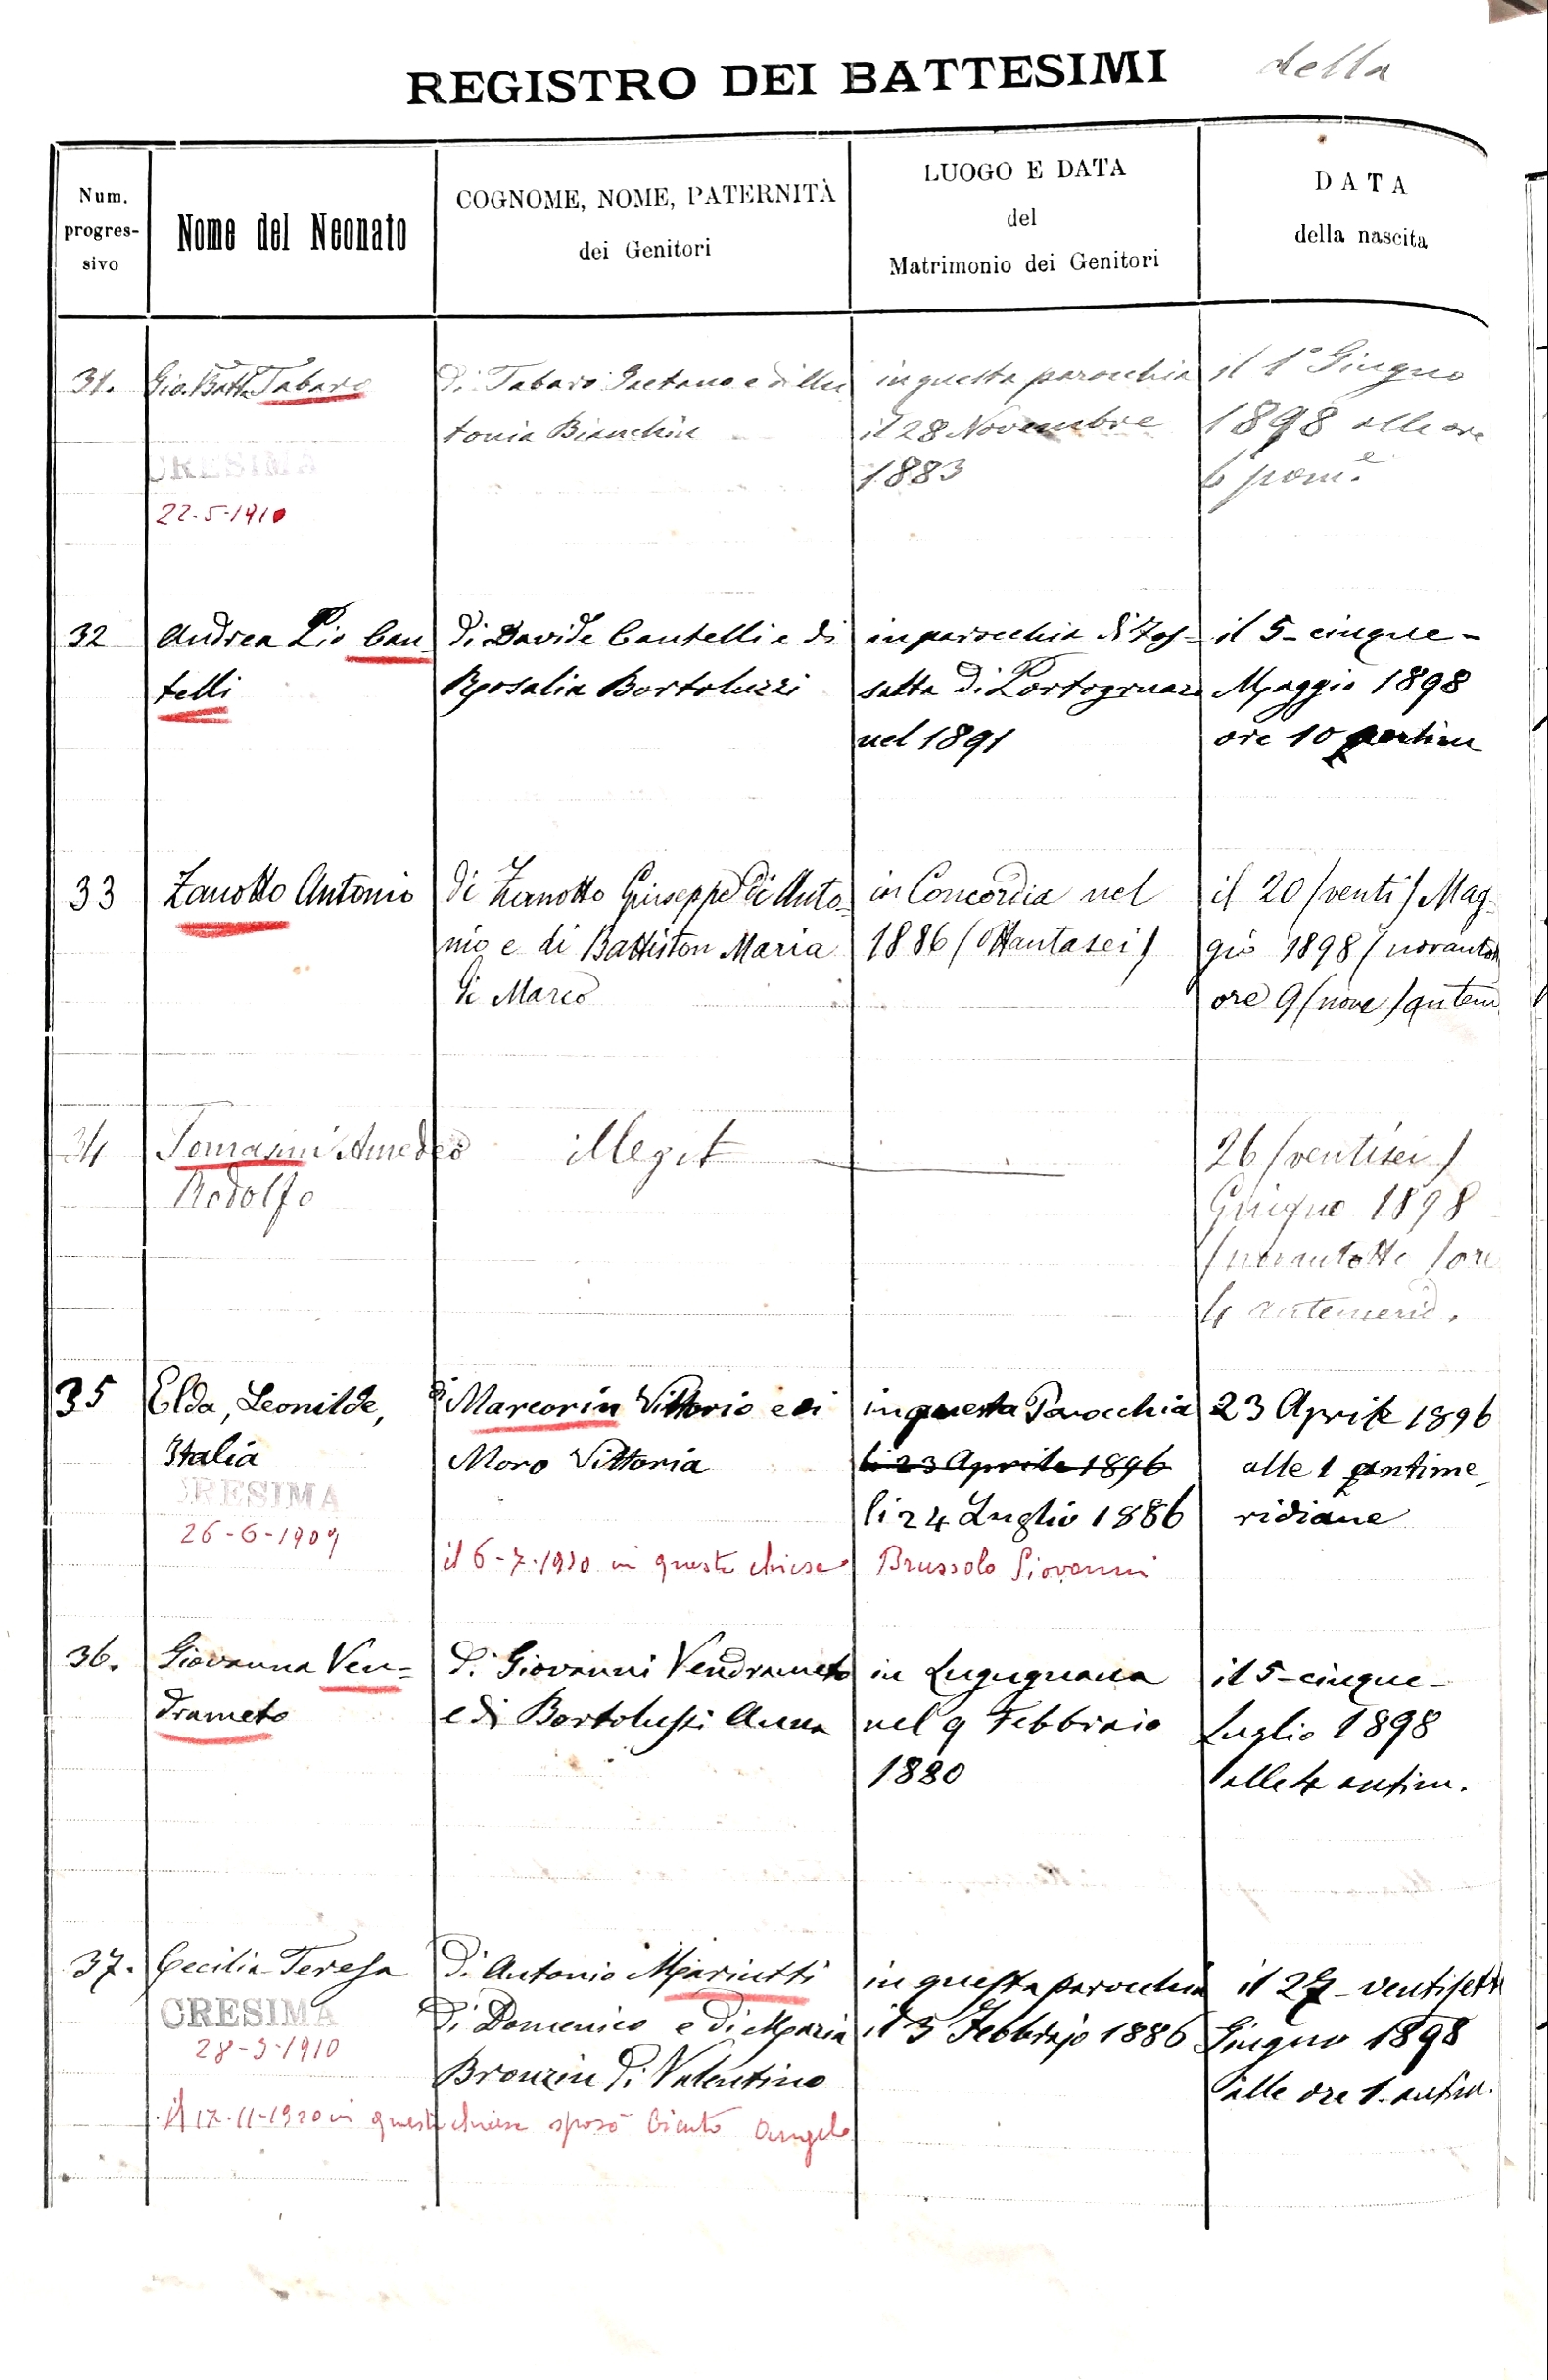 REGISTRO DEI BATTESIMI della
Num.
progres-
sivo
Nome del Neonato
COGNOME, NOME, PATERNITÀ
dei Genitori
LUOGO E DATA
del
Matrimonio dei Genitori
DATA
della nascita
31.
Gio. Batta Tabaro
CRESIMA
22-5-1910
di Tabaro Gaetano e di An
tonia Bianchin
in questa parocchia
il 28 Novembre
1883
il 1° Giugno
1898 alle ore
6 pom.e
32
Andrea Pio Can
telli
di Davide Cantelli e di
Rosalia Bortoluzzi
in parocchia di Fos-
salta di Portogruaro
nel 1891
il 5-cinque-
Maggio 1898
ore 10
33
Zanotto Antonio
di Zanotto Giuseppe di Anto
nio e di Battiston Maria
di Marco
in Concordia nel
1886 (Ottantasei)
il 20 (venti) Mag-
gio 1898 (novantot
ore 9 (nove) antem
34
Tomasini Amedeo
Rodolfo
illegit
26 (ventisei)
Giugno 1898
(novantotto) ore
4 antemerid.
35
Elda, Leonilde,
Italia
CRESIMA
26-6-1909
di Marcorin Vittorio e di
Moro Vittoria
il 6-7-1920 in questa chiesa
in questa Parocchia
li 23 Aprile 1896
li 24 Luglio 1886
Brussolo Giovanni
23 Aprile 1896
alle 1 antime
ridiane
36.
Giovanna Ven-
drameto
di Giovanni Vendrameto
e di Bortolussi Anna
in Lugugnana
nel 9 Febbraio
1880
il 5-cinque-
Luglio 1898
alle 4 antim.
37.
Cecilia Teresa
CRESIMA
28-5-1910
di Antonio Mariutti
di Domenico e di Maria
Bronzin di Valentino
il 17-11-1920 in questa chiesa sposò Angelo
in questa parocchia
il 3 Febbrajo 1886
il 27-ventisette
Giugno 1898
alle ore 1. antim.